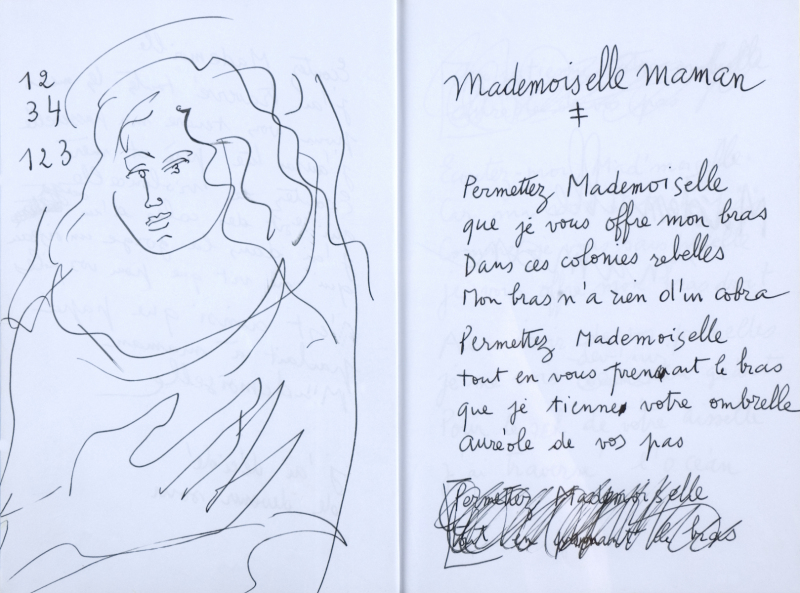 12
34
123
Mademoiselle maman
‡
Permettez Mademoiselle
que je vous offre mon bras
Dans ces colonies rebelles
Mon bras n'a rien d'un cobra
Permettez Mademoiselle
tout en vous prenant le bras
que je tienne votre ombrelle
auréole de vos pas
Permettez Mademoiselle
tout en prenant le bras